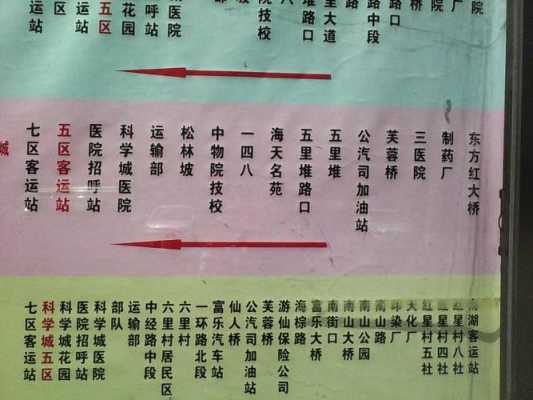 运站
区
五区
花园
呼站
医院
坡
部
院技校
八
堆路口
里大道
路中段
路口
桥
院
厂
院
城
七区客运站
五区客运站
医院招呼站
科学城医院
运输部
松林坡
中物院技校
一四八
海天名苑
五里堆路口
五里堆
公汽司加油站
芙蓉桥
三医院
制药厂
东方红大桥
七区客运站
科学城五区
科学城花园
医院招呼站
科学城医院
部队
运输部
中经路中段
六里村居民区
六里村
一环路北段
富乐汽车站
仙人桥
公汽司加油站
芙蓉桥
游仙保险公司
海棕路
富乐大桥
南街口
南山大桥
南山公园
南山路
印染厂
天化厂
红星村五社
红星村四社
红星村八社
南湖客运站